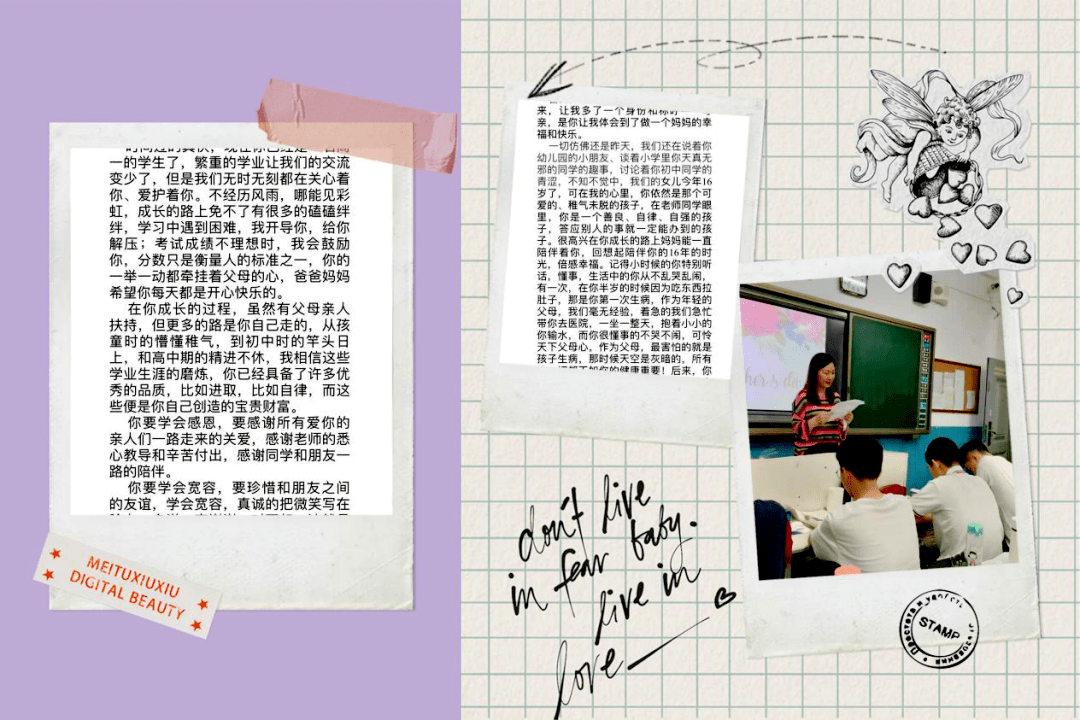 时间过的真快，现在你已经是一名高
一的学生了，繁重的学业让我们的交流
变少了，但是我们无时无刻都在关心着
你、爱护着你。不经历风雨，哪能见彩
虹，成长的路上免不了有很多的磕磕绊
绊，学习中遇到困难，我开导你，给你
解压；考试成绩不理想时，我会鼓励
你，分数只是衡量人的标准之一，你的
一举一动都牵挂着父母的心，爸爸妈妈
希望你每天都是开心快乐的。
在你成长的过程，虽然有父母亲人
扶持，但更多的路是你自己走的，从孩
童时的懵懂稚气，到初中时的竿头日
上，和高中期的精进不休，我相信这些
学业生涯的磨炼，你已经具备了许多优
秀的品质，比如进取，比如自律，而这
些便是你自己创造的宝贵财富。
你要学会感恩，要感谢所有爱你的
亲人们一路走来的关爱，感谢老师的悉
心教导和辛苦付出，感谢同学和朋友一
路的陪伴。
你要学会宽容，要珍惜和朋友之间
的友谊，学会宽容，真诚的把微笑写在
MEITUXIUXIU
DIGITAL BEAUTY
来，让我多了一个身份和称呼
亲，是你让我体会到了做一个妈妈的幸
福和快乐。
一切仿佛还是昨天，我们还在说着你
幼儿园的小朋友、谈着小学里你天真无
邪的同学的趣事，讨论着你初中同学的
青涩，不知不觉中，我们的女儿今年16
岁了，可在我的心里，你依然是那个可
爱的、稚气未脱的孩子，在老师同学眼
里，你是一个善良、自律、自强的孩
子，答应别人的事就一定能办到的孩
子。很高兴在你成长的路上妈妈能一直
陪伴着你，回想起陪伴你的16年的时
光，倍感幸福。记得小时候的你特别听
话，懂事，生活中的你从不乱哭乱闹，
有一次，在你半岁的时候因为吃东西拉
肚子，那是你第一次生病，作为年轻的
父母，我们毫无经验，着急的我们急忙
带你去医院，一坐一整天，抱着小小的
你输水，而你很懂事的不哭不闹，可怜
天下父母心，作为父母，最害怕的就是
孩子生病，那时候天空是灰暗的，所有
都不如你的健康重要！后来，你
her's da
don't live
in fear baby.
live in
love
STAMP